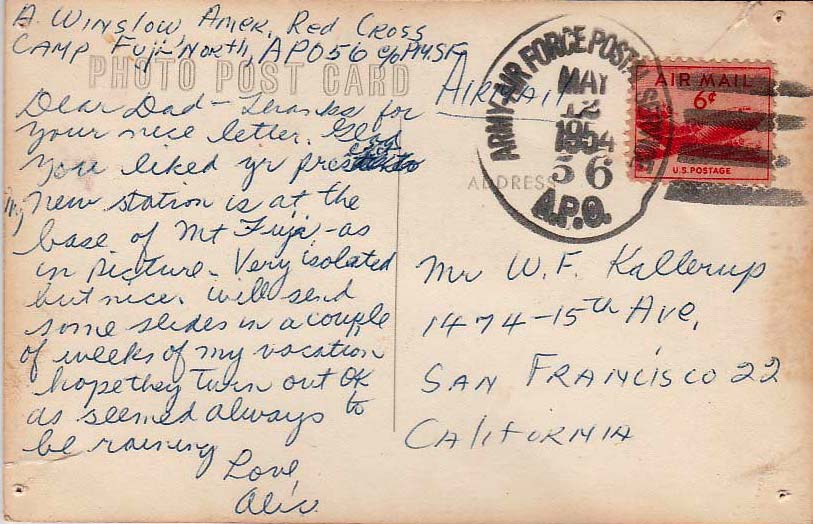 A. Winslow, Amer. Red Cross
Camp Fuji North, APO 56 c/o PM. SF.
PHOTO POST CARD
AIRMAIL
Dear Dad - Thanks for
your nice letter. Glad
you liked yr
My
new station is at the
base of Mt Fuji - as
in picture. Very isolated
but nice. will send
some slides in a couple
of weeks of my vacation
hope they turn out OK
as seemed always to
be raining
Love,
ARMY-AIR FORCE POSTAL SERVICE
MAY
12
1954
56
A.P.O.
AIR MAIL
6¢
U.S. POSTAGE
ADDRESS
Mr W. F. Kallerup
1474 - 15th Ave,
SAN FRANCISCO 22
CALIFORNIA